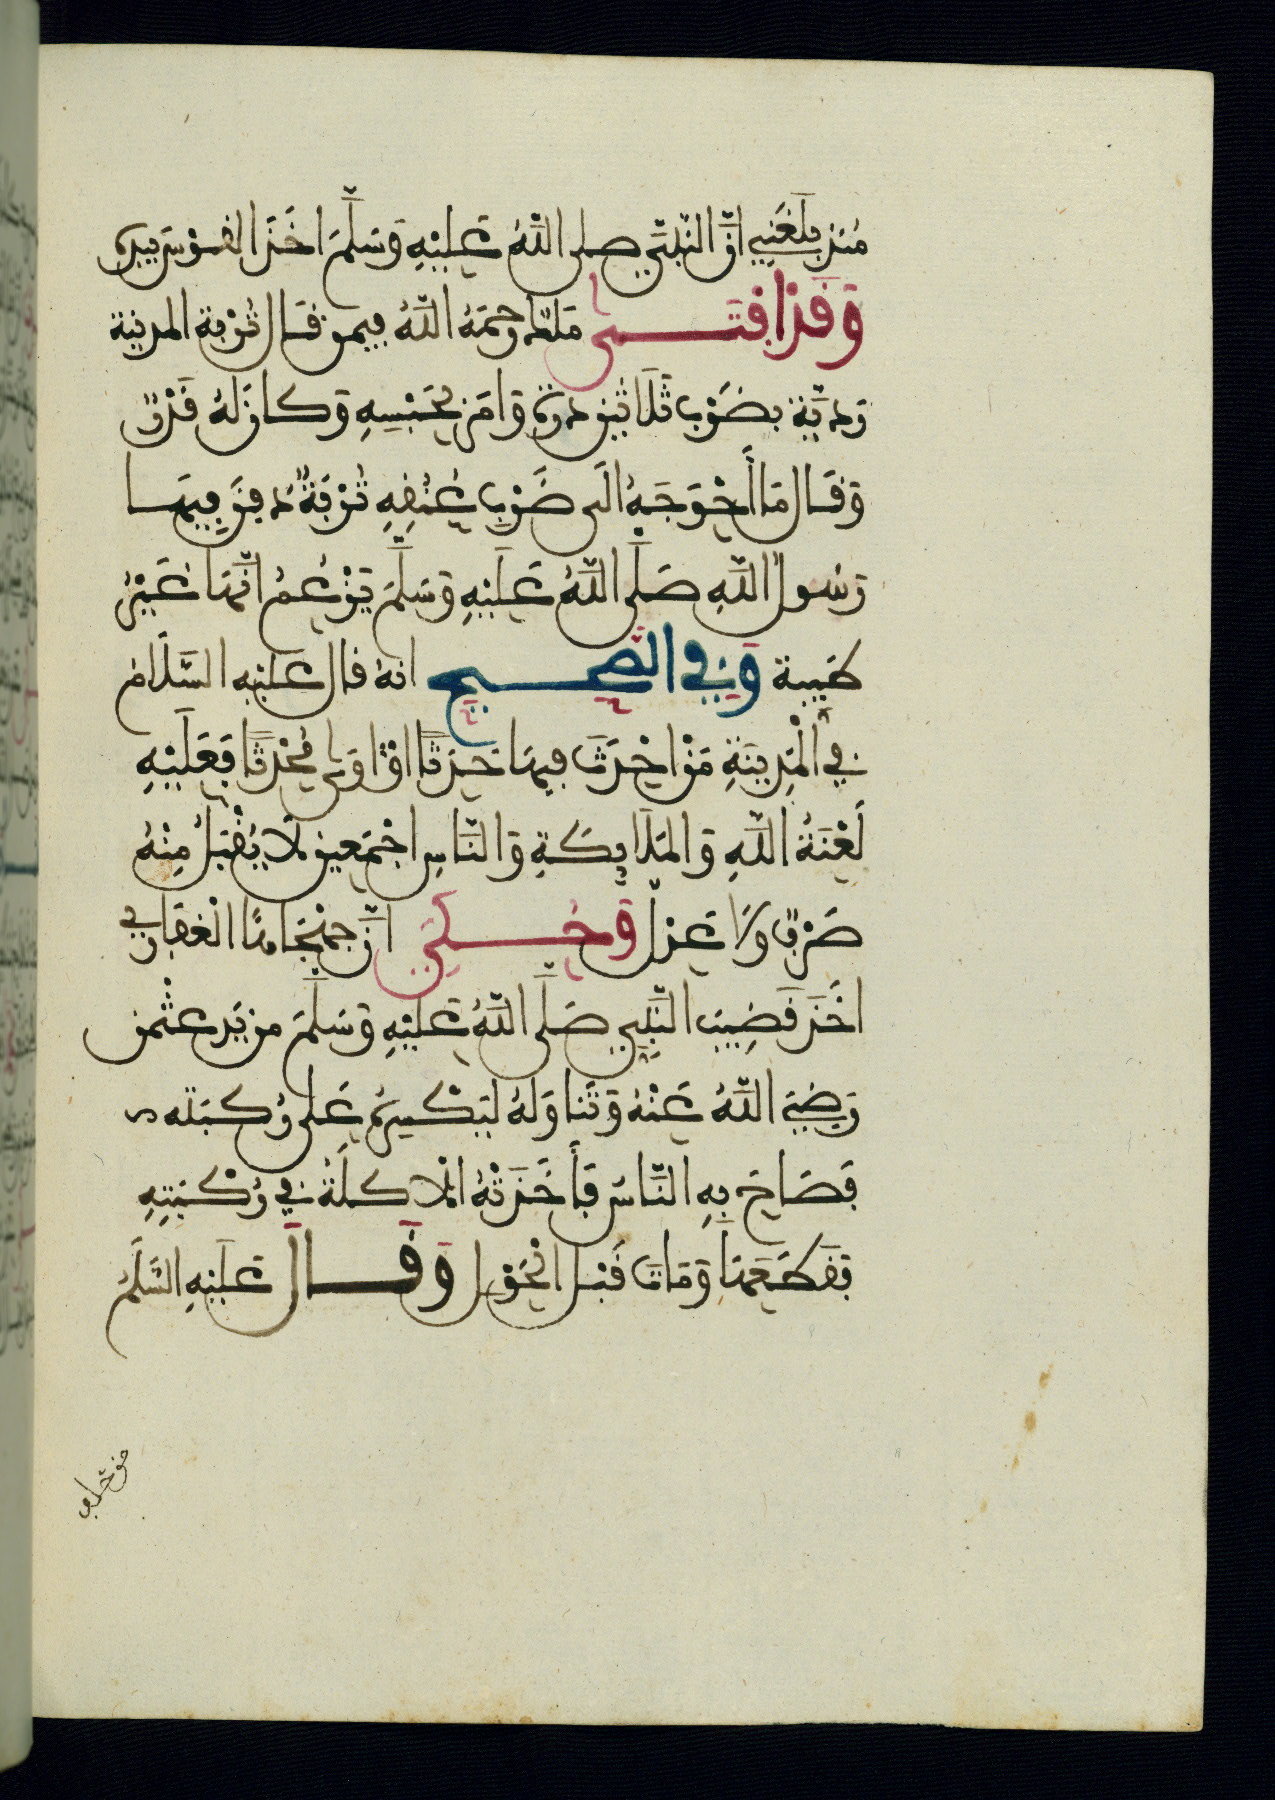 مُنذ بلَغَنِي أنَّ النَّبِيَّ صلى اللهُ عَلَيْهِ وَسَلَّمَ اخَذَ القَوْسَ بيدِهِ
وَقَد افتَى مَلك رحمَهُ اللهُ فيمَن قَال تُرْبة المدينة
رَدِيَّة بضَرْب ثَلَاثين درة وَامَر بحَبْسِهِ وَكان لَهُ قَدْرٌ
وَقَال مَا أَحْوَجَهُ الَى ضَرْبِ عُنُقِهِ تُرْبَةٌ دفِنَ فِيهَا
رَسُولُ اللهِ صَلَّى اللهُ عَلَيْهِ وَسَلَّمَ يَزْعُمُ انَّهَا غَيْرُ
طَيِبة وَفِي الصَّحيح انهُ قال عَلَيْهِ السَّلَام
فِي الْمَدِينَةِ مَنْ احْدَثَ فيهَا حَدَثًا اوْ اوَى مُحْدِثًا فَعَلَيْهِ
لَعْنَةُ اللهِ وَالمَلَايِكَةِ وَالنَّاسِ اجْمَعِينَ لَا يُقْبَلُ مِنْهُ
صَرْفٌ وَلَا عَدْلٌ وَحُكِيَ انَّ جهْجَاهًا الْغفَارِي
اخَذَ قَضِيبَ النَّبِيِ صَلَّى اللهُ عَلَيْهِ وَسَلَّمَ من يَدِ عثْمن
رَضِيَ اللهُ عَنْهُ وَتَنَاوَلهُ ليَكْسِرَهُ عَلَى رُكبَتِه
فَصَاحَ بهِ النَّاسُ فَأَخَذَتْهُ الْاكلَةُ فِي رُكْبَتِهِ
فَقَطَعَهَا وَمَات قَبْل الحَوْل وَقَالَ عَلَيْهِ السَّلَمُ
من حلف